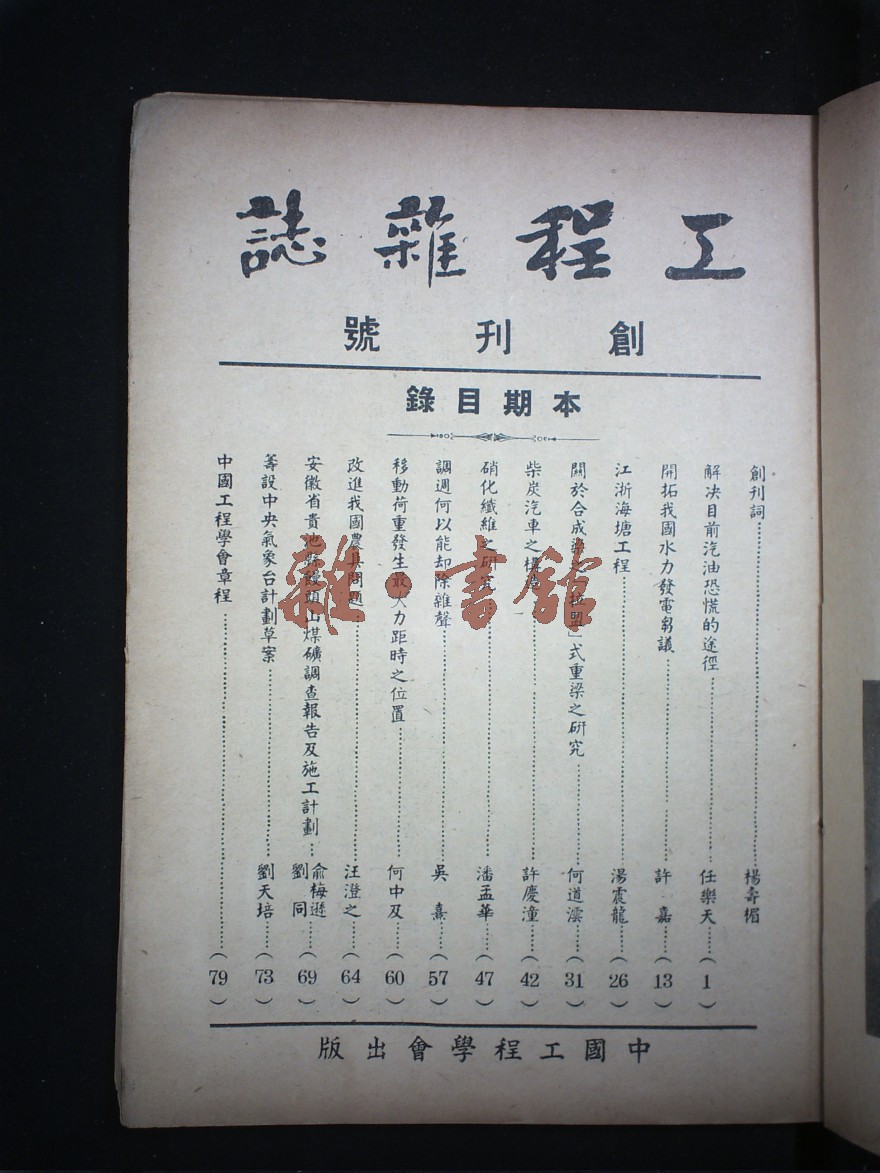 工程雜誌
創刊號
本期目錄
創刊詞……楊壽楣
解决目前汽油恐慌的途徑……任樂天……(1)
開拓我國水力發電芻議……許嘉……(13)
江浙海塘工程……湯震龍……(26)
關於合成梁之「拉盟」式重梁之研究……何道澐……(31)
柴炭汽車之構造……許慶潼……(42)
硝化纖維之研究……潘孟華……(47)
調週何以能却除雜聲……吳熹……(57)
移動荷重發生最大力距時之位置……何中及……(60)
改進我國農具問題……汪澄之……(64)
安徽省貴池縣饅頭山煤礦調查報告及施工計劃……俞梅遜 劉同……(69)
籌設中央氣象台計劃草案……劉天培……(73)
中國工程學會章程……(79)
中國工程學會出版
雜·書館